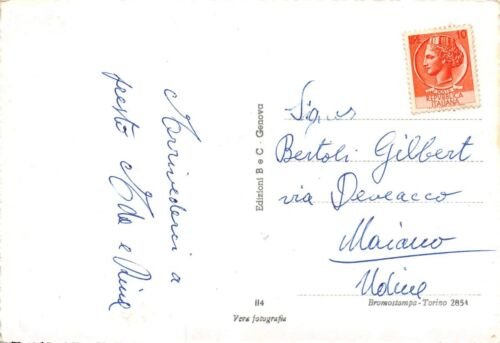 Arrivederci a
presto Ada e Rina
Edizioni B e C - Genova
10
POSTE
REPUBBLICA
ITALIANA
Signor
Bertoli Gilbert
via Deveacco
Maiano
Udine
114
Bromostampa - Torino 2854
Vera fotografia